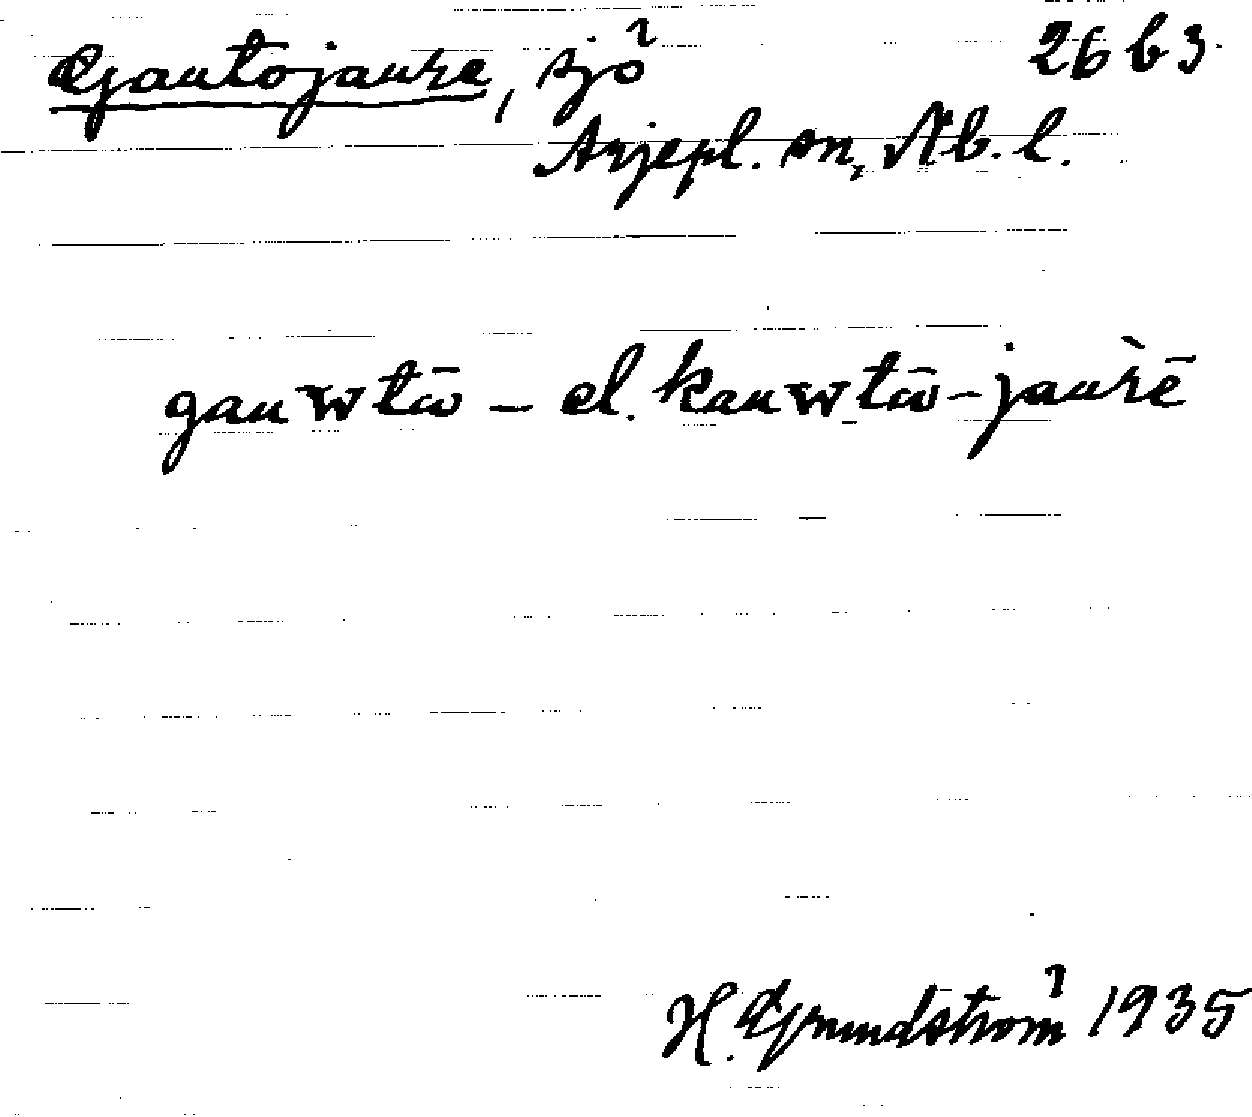 Gautojaure, sjö 26 b 3.
Arjepl. sn, Nb. l.
gauwtō – el. kauwtō-jaurè̄
H. Grundström 1935